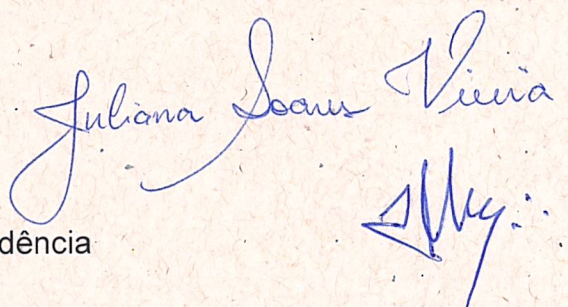 Juliana Soares Vieira
dência